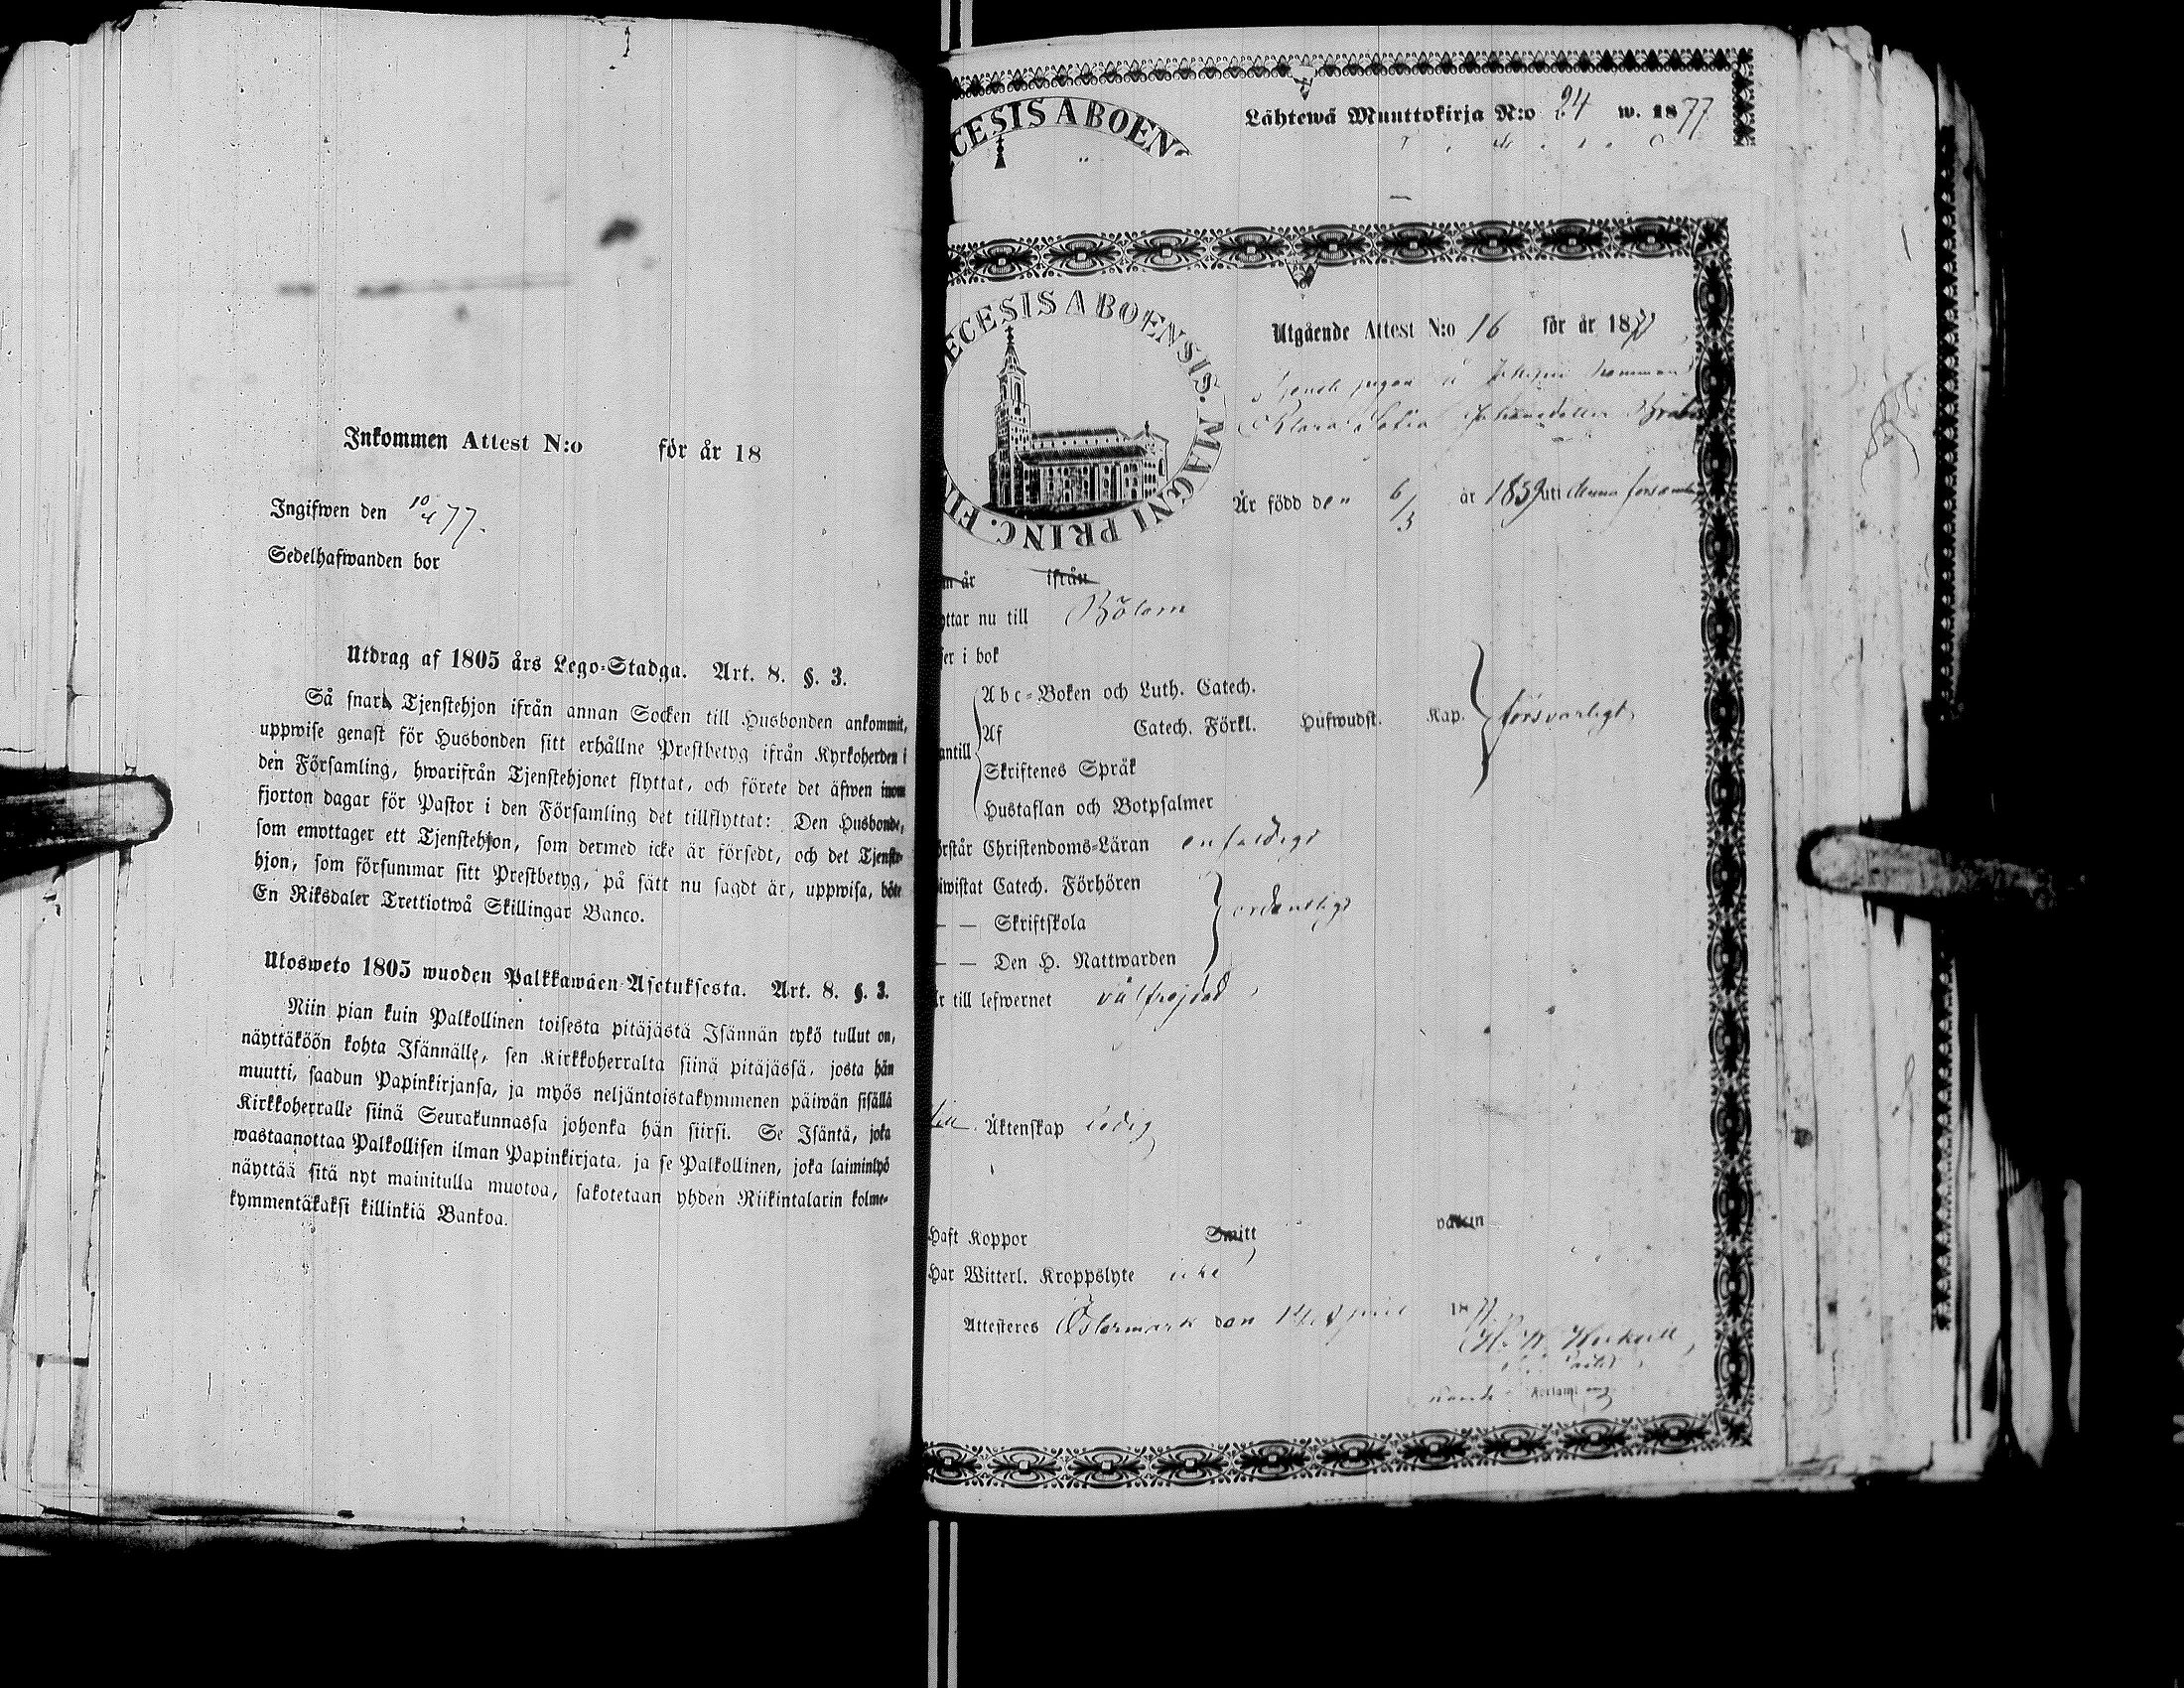 Inkommen Attest N:o för år 18
Ingifwen den 10/4 77.
Sedelhafwanden bor
Utdrag af 1805 års Lego-Stadga. Art. 8. §. 3.
Så snart Tjenstehjon ifrån annan Socken till Husbonden ankommit,
uppwise genast för Husbonden sitt erhållne Prestbetyg ifrån Kyrkoherden i
den Församling, hwarifrån Tjenstehjonet flyttat, och förete det äfwen inom
fjorton dagar för Pastor i den Församling det tillflyttat: Den Husbonde,
som emottager ett Tjenstehjon, som dermed icke är försedt, och det Tjenste-
hjon, som försummar sitt Prestbetyg, på sätt nu sagdt är, uppwisa, böte
En Riksdaler Trettiotwå Skillingar Banco.
Ulosweto 1805 wuoden Palkkawäen Asetuksesta. Art. 8. §. 3.
Niin pian kuin Palkollinen toisesta pitäjästä Isännän tykö tullut on,
näyttäköön kohta Isännälle, sen Kirkkoherralta siinä pitäjässä, josta hän
muutti, saadun Papinkirjansa, ja myös neljäntoistakymmenen päiwän sisällä
Kirkkoherralle siinä Seurakunnassa johonka hän siirsi. Se Isäntä, joka
wastaanottaa Palkollisen ilman Papinkirjata, ja se Palkollinen, joka laiminlyö
näyttää sitä nyt mainitulla muotoa, sakotetaan yhden Riikintalarin kolme-
kymmentäkaksi killinkiä Bankoa.
CESIS ABOEN
Lähtewä Muuttokirja N:o 24 w. 1877
ECESIS ABOENSIS. MAGNI PRINC. FI
Utgående Attest N:o 16 för år 1877
Klara Sofia
Är född den 6/3 år 1859 uti
år ifrån
ttar nu till Bölom
er i bok
Abc-Boken och Luth. Catech.
Af Catech. Förkl. Hufwudst. Kap. försvarligt
antill
Skriftenes Språk
Hustaflan och Botpsalmer
rstår Christendoms-Läran enfaldigt
iwistat Catech. Förhören
— — Skriftskola ordentligt
— — Den H. Nattwarden
r till lefwernet välfrejdad
till Äktenskap ledig
Haft Koppor Smitt vaccin
Har Witterl. Kroppslyte icke
Attesteres Östermark den 14 April 1877